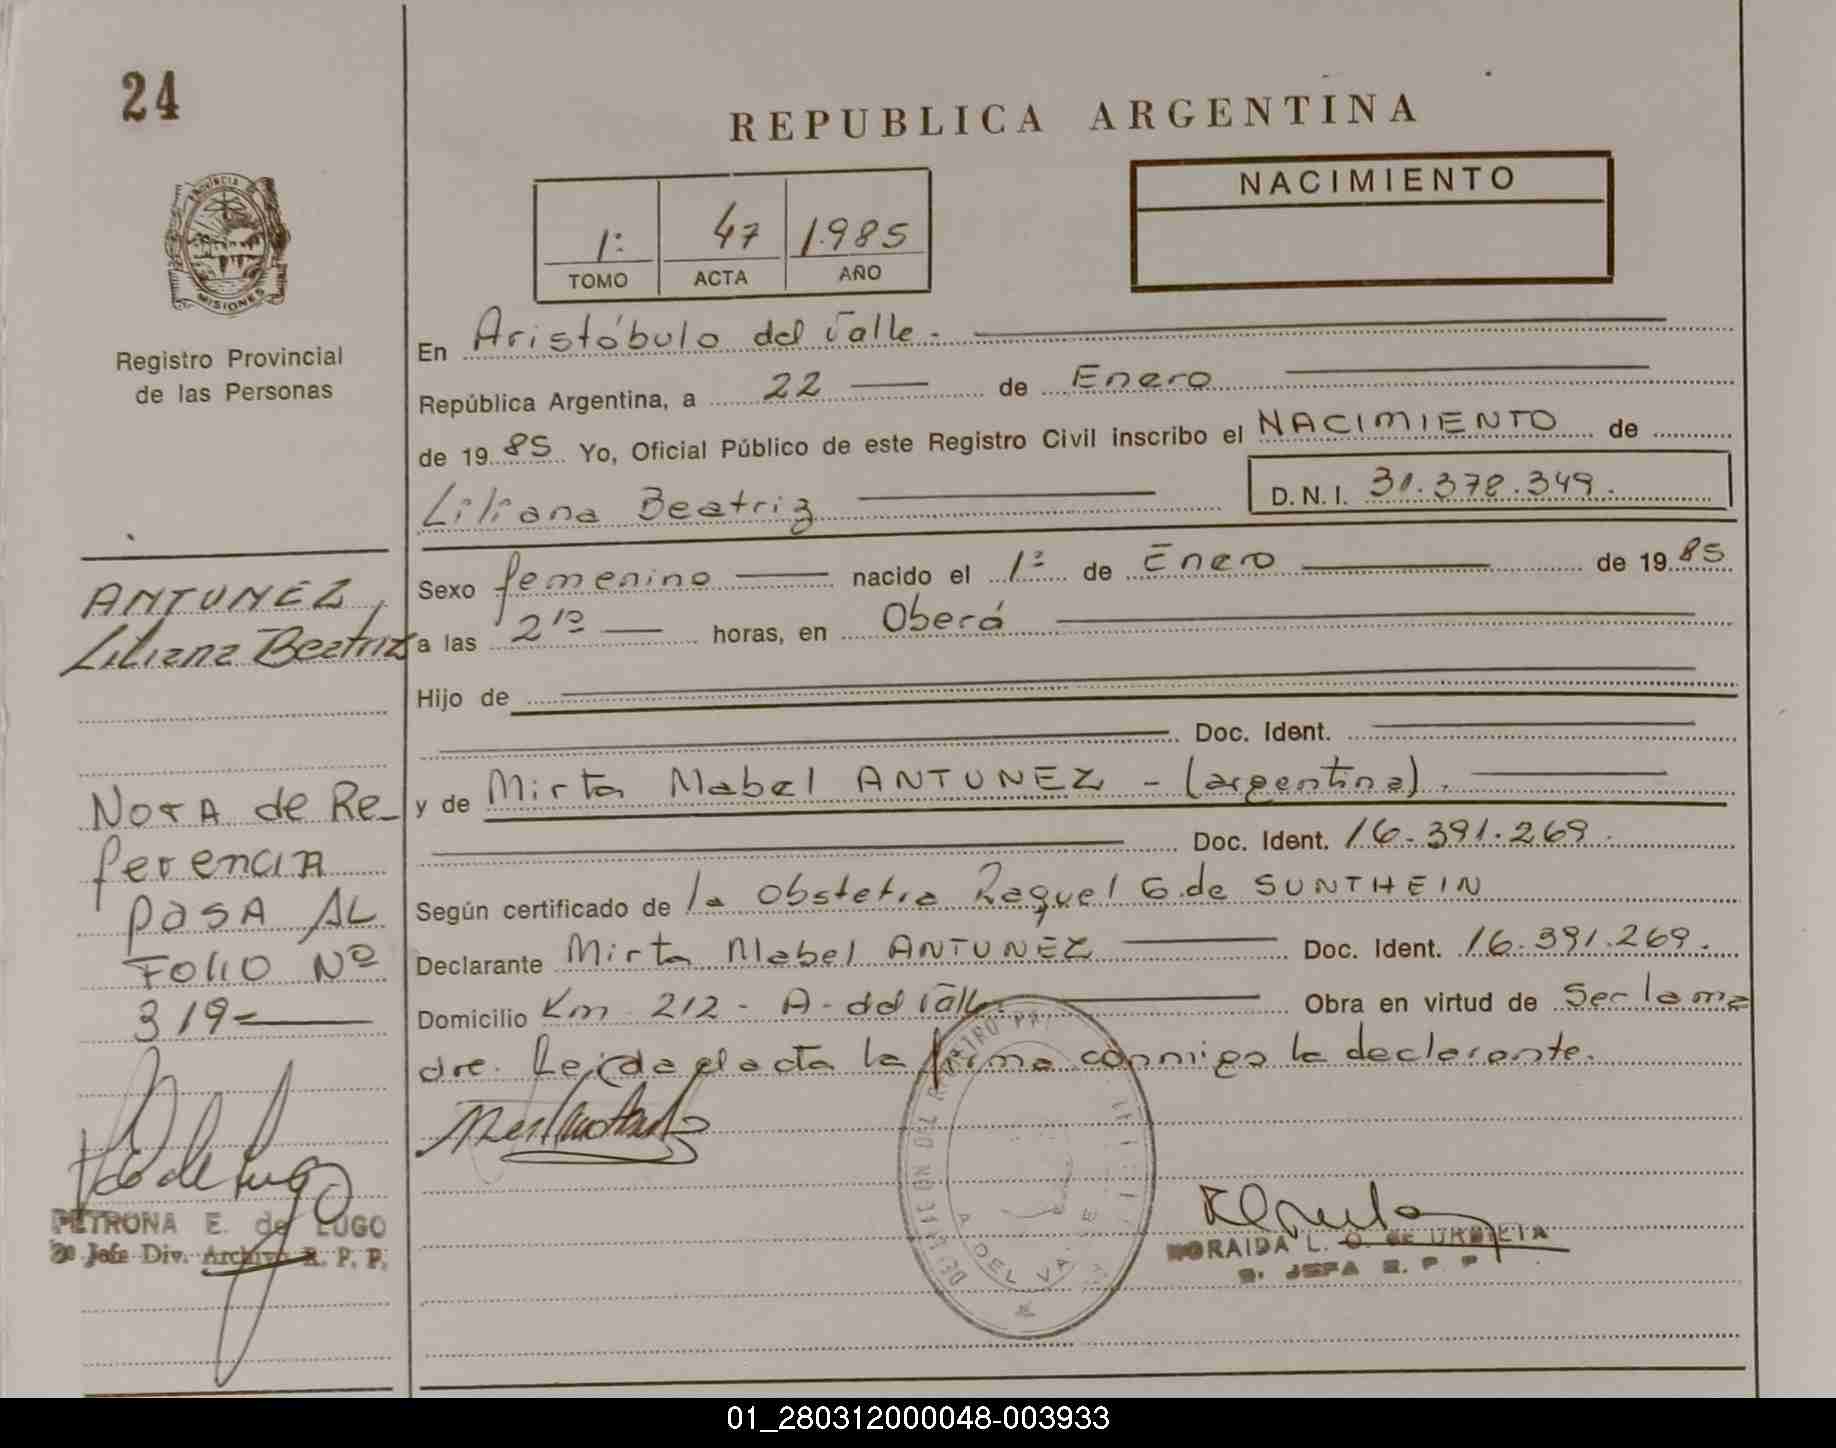 24
REPUBLICA ARGENTINA
PROVINCIA DE
MISIONES
Registro Provincial
de las Personas
1º 47 1.985
TOMO ACTA AÑO
NACIMIENTO
En Aristóbulo del Valle.
República Argentina, a 22 de Enero
de 1985 Yo, Oficial Público de este Registro Civil inscribo el NACIMIENTO de
Liliana Beatriz D.N.I. 31.378.349.
ANTUNEZ,
Liliana Beatriz
Sexo femenino nacido el 1º de Enero de 1985
a las 21º horas, en Oberá
Hijo de
Doc. Ident.
y de Mirta Mabel ANTUNEZ - (argentina).
Doc. Ident. 16.391.269.
Según certificado de la obstetra Raquel G. de SUNTHEIN
Declarante Mirta Mabel ANTUNEZ Doc. Ident. 16.391.269.
Domicilio Km 212 - A. del Valle. Obra en virtud de Ser la ma
dre. Leída el acta la firma conmigo la declarante.
NOTA de Re_
ferencia
PASA AL
FOLIO Nº
319-
PETRONA E. de LUGO
Jefe Div. Archivo R. P. P.
NORAIDA L. O. de URBIETA
JEFA R. P. P.
A. DEL VALLE
01_280312000048-003933